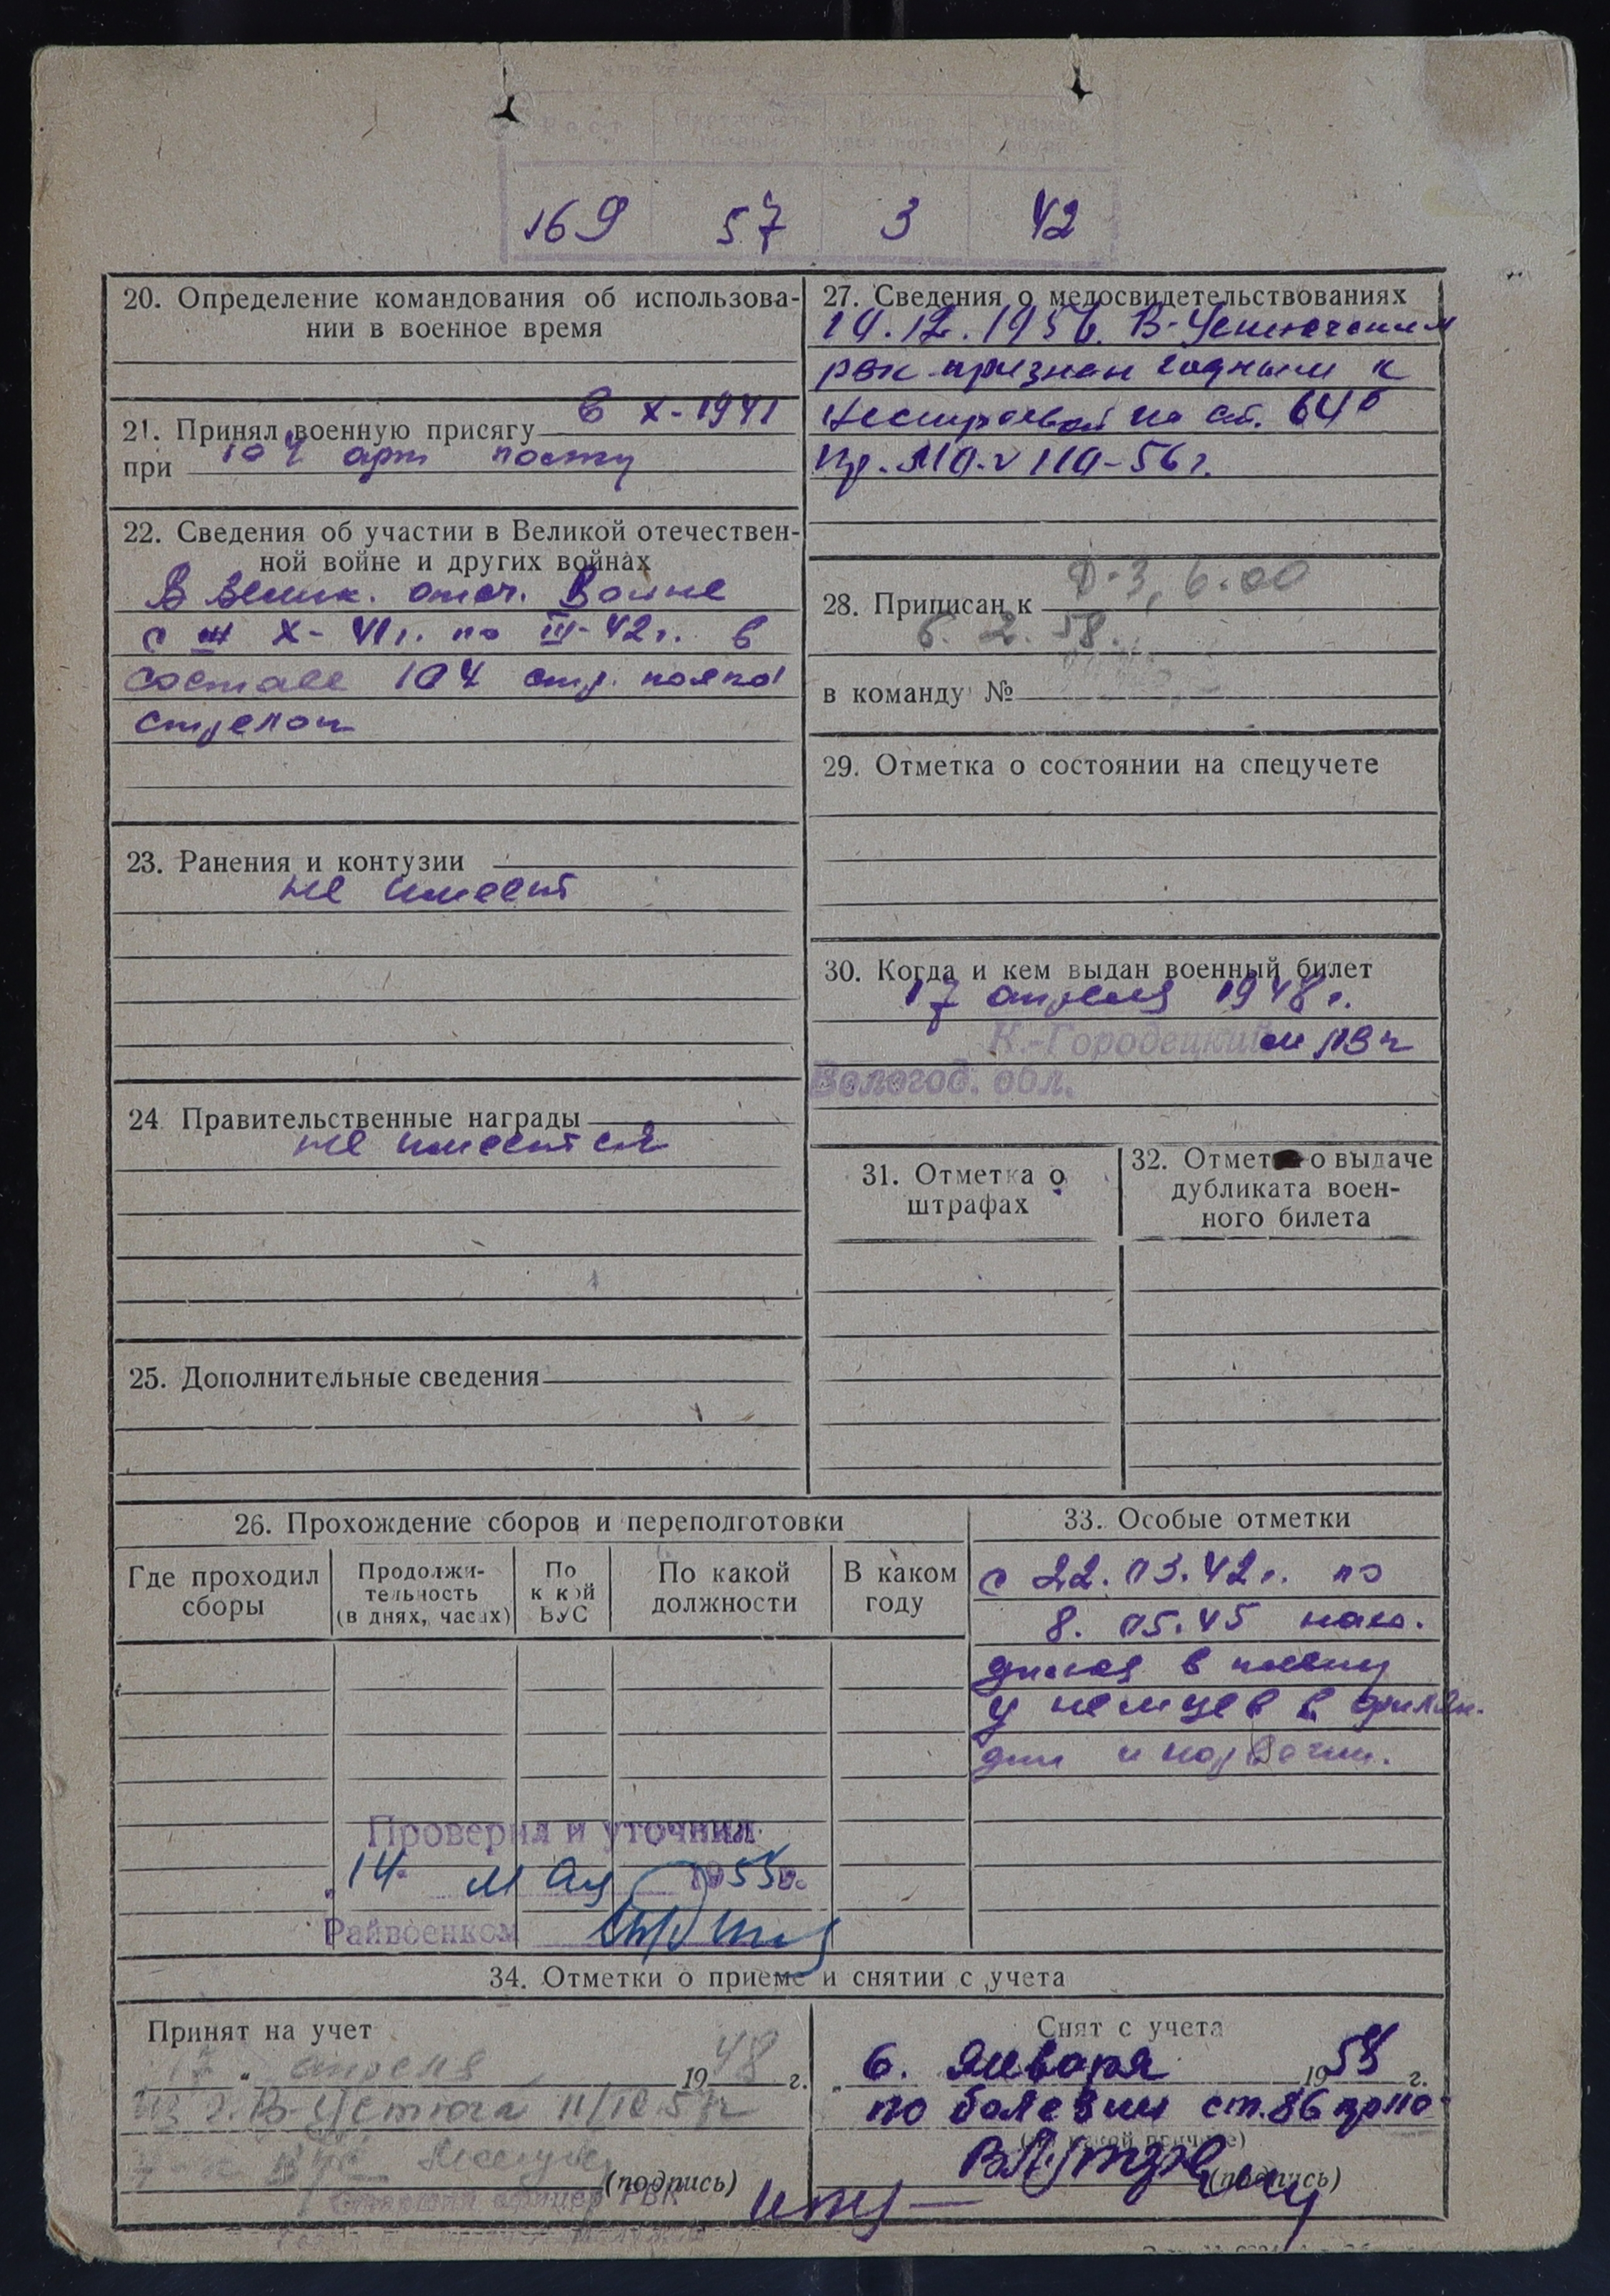 169 57 3 42
20. Определение командования об использова-
нии в военное время
21. Принял военную присягу в X-1941
при 104 арт полку
22. Сведения об участии в Великой отечествен-
ной войне и других войнах
В Велик. отеч. Войне
с X-41г. по III-42г. в
составе 104 стр. полка
стрелок
23. Ранения и контузии
не имеет
24 Правительственные награды
не имеется
25. Дополнительные сведения
27. Сведения о медосвидетельствованиях
19.12.1956. В-Устюгским
рвк признан годным к
нестроевой по ст. 64б
пр. МО. 110-56г.
28. Приписан к Д-3, 6.00
6. 2. 58.
в команду №
29. Отметка о состоянии на спецучете
30. Когда и кем выдан военный билет
17 апреля 1948г.
К.-Городецким РВк
Вологод. обл.
31. Отметка о
штрафах
32. Отметка о выдаче
дубликата воен-
ного билета
26. Прохождение сборов и переподготовки
Где проходил
сборы
Продолжи-
тельность
(в днях, часах)
По
к кой
ВУС
По какой
должности
В каком
году
33. Особые отметки
с 22.03.42г. по
8. 05.45 нахо-
дился в плену
у немцев в финлян-
дии и норвегии.
Проверил и уточнил
"14" мая 1955г.
Райвоенком
34. Отметки о приеме и снятии с учета
Принят на учет
17 " апреля 1948 г.
из г. В-Устюга
(подпись)
Старший офицер РВК
Снят с учета
" 6. Января 1959 г.
по болезни ст. 86 пр МО
(по какой причине)
(подпись)